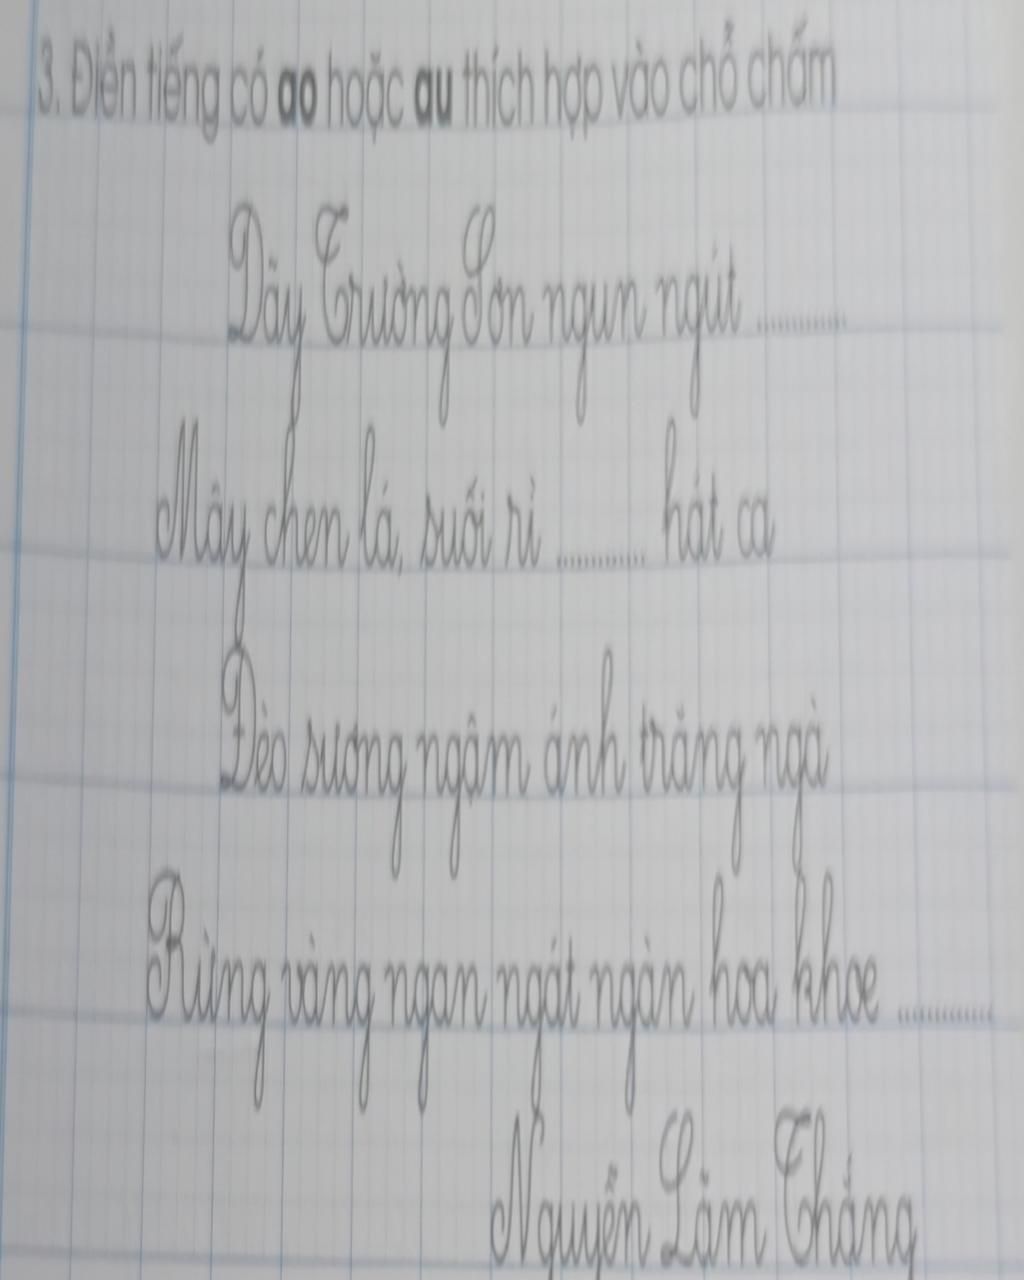 3. Điền tiếng có ao hoặc au thích hợp vào chỗ chấm
Dãy Trường Sơn ngun ngút ............
Mây chen lá, suối rì ............ hát ca
Đèo sương ngậm ánh trăng ngà
Rừng vàng ngan ngát ngàn hoa khoe ............
Nguyễn Lãm Thắng